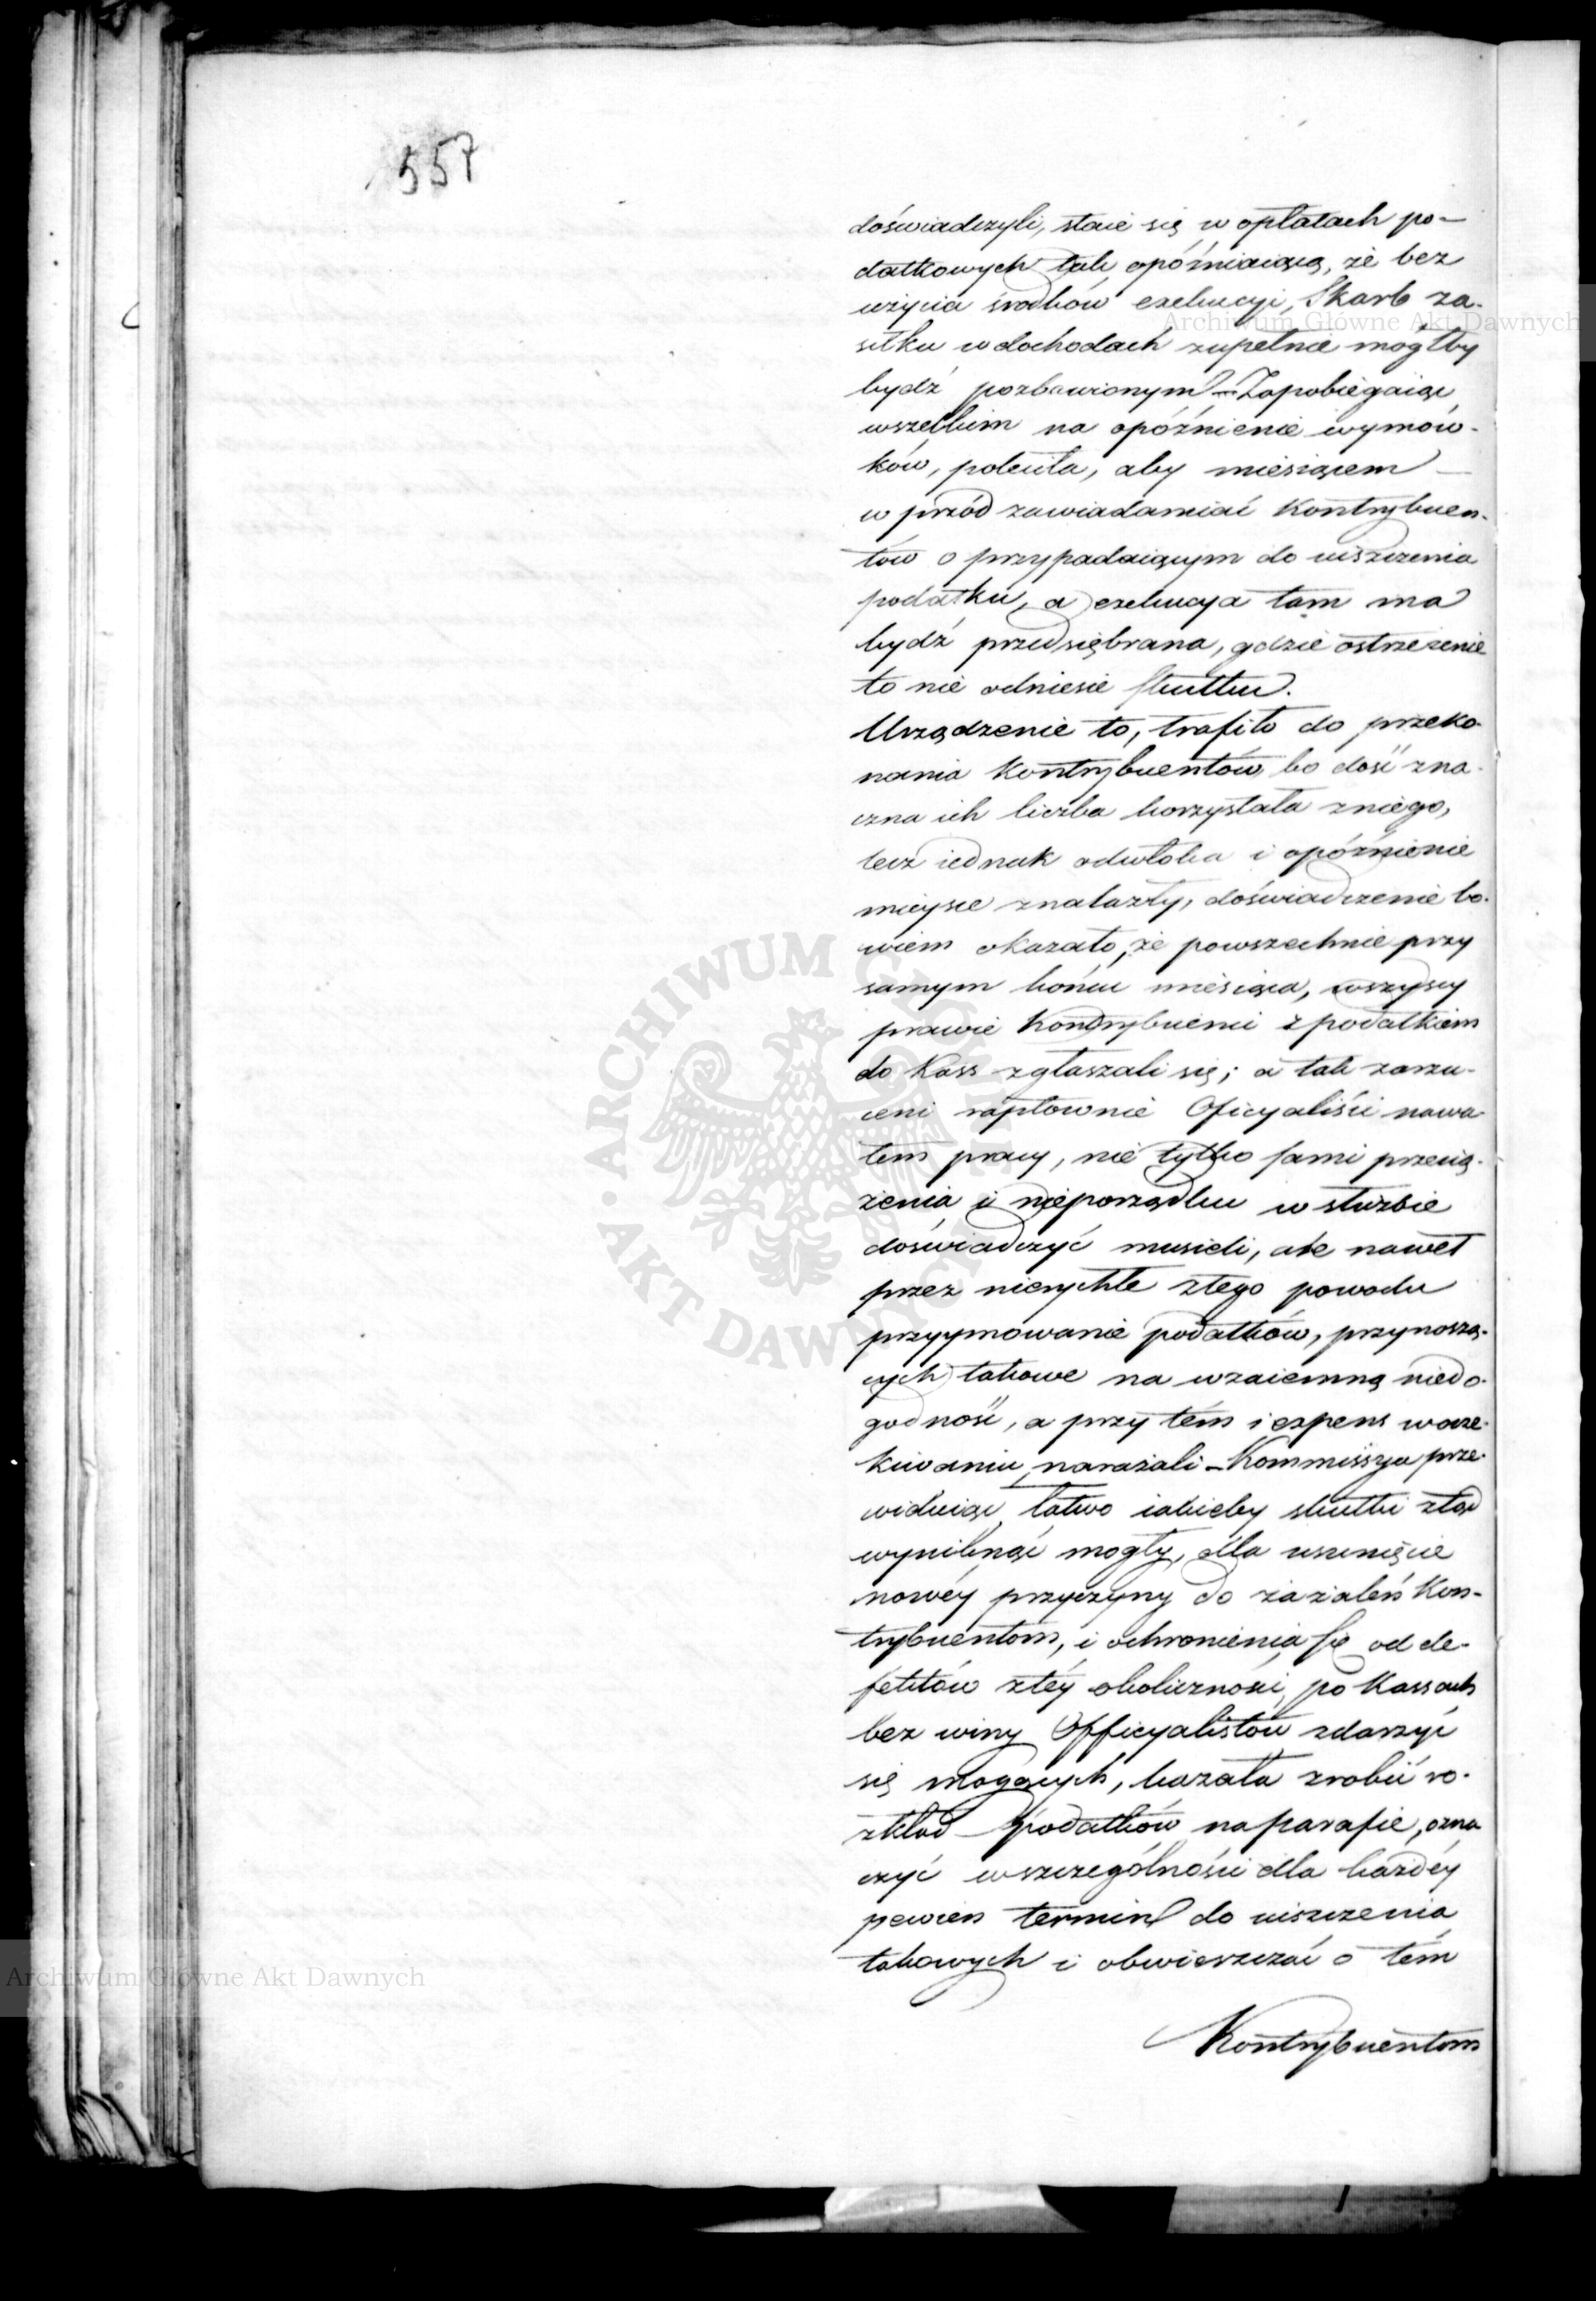 557
doświadczyli, staie się w opłatach po-
datkowych tak opóźniaiącą, że bez
użycia środków exekucyi, Skarb za-
siłku w dochodach zupełnie mógłby
bydź pozbawionym – Zapobiegaiąc
wszelkim na opóźnienie wymów-
ków, poleciła, aby miesiącem –
w przód zawiadamiać Kontrybuen-
tów o przypadaiącym do uiszczenia
podatku, a exekucya tam ma
bydź przedsiębrana, gdzie ostrzeżenie
to nie odniesie skutku.
Urządzenie to, trafiło do przeko-
nania Kontrybuentów bo dość zna-
czna ich liczba korzystała z niego,
lecz iednak odwłoka i opóźnienie
mieysce znalazły, doświadczenie bo-
wiem okazało, że powszechnie przy
samym końcu miesiąca, wszyscy
prawie Kontrybuenci z podatkiem
do Kass zgłaszali się; a tak zarzu-
ceni raptownie Oficyaliści nawa-
łem pracy, nie tylko sami przecią-
żenia i nieporządku w służbie
doświadczyć musieli, ale nawet
przez nierychłe z tego powodu
przyymowanie podatków, przynoszą-
cych takowe na wzaiemną niedo-
godność, a przy tém i expens w ocze-
kiwaniu narażali – Kommissya prze-
widuiąc łatwo iakieby skutki ztąd
wyniknąć mogły, dla usunięcie
nowéy przyczyny do zażaleń Kon-
trybuentom, i ochronienia się od de-
fektów z téy okoliczności, po Kassach
bez winy Officyalistów zdarzyć
się mogących, kazała zrobić ro-
zkład podatków na parafie, ozna-
czyć w szczególności dla każdéy
pewien termin do uiszczenia
takowych i obwieszczać o tém
Kontrybuentom
Archiwum Główne Akt Dawnych
Archiwum Główne Akt Dawnych